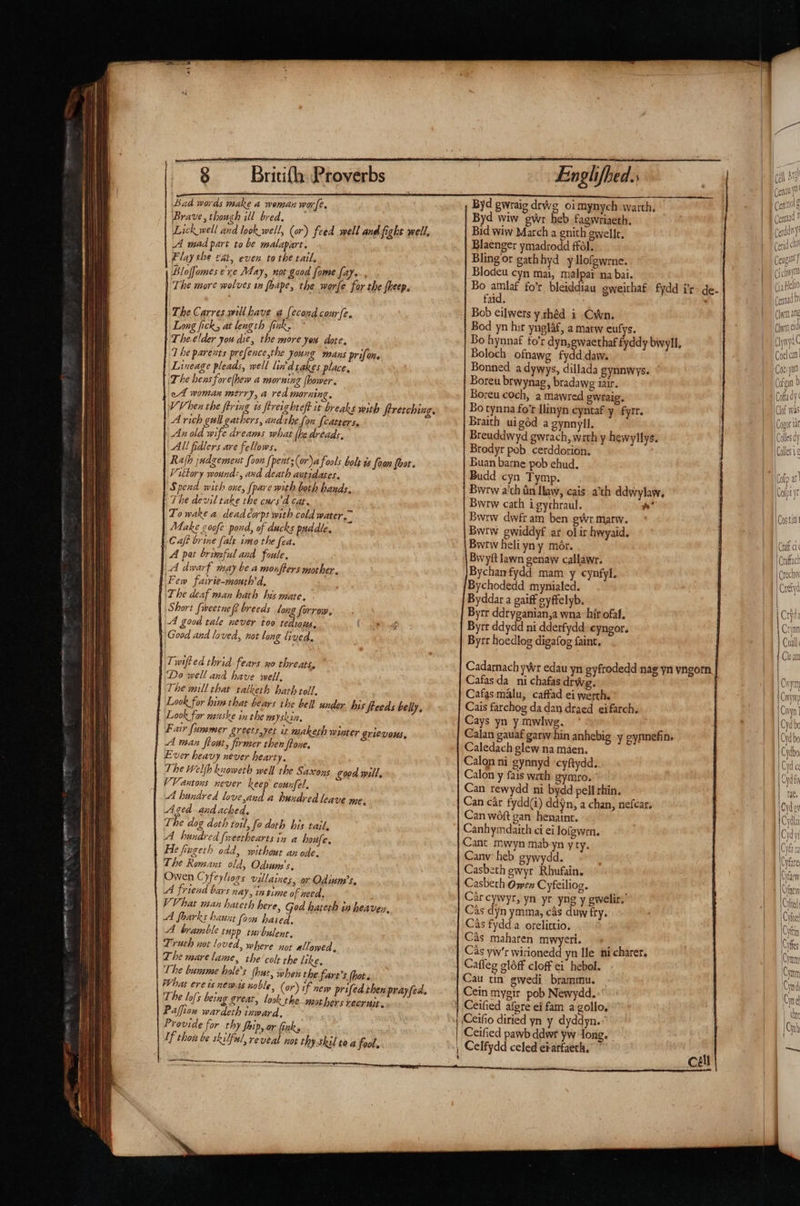 8 Britiſh Proverbs
Bad words make a woman worſe.
Brave, though ill bred.
Lick well and look well, (or) feed well and fight well.
A mad part to be malapert.
Flay the cat, even to the tail.
Bloſſomes ere May, not good ſome ſay.
The more wolves in ſhape, the worſe for the ſheep.
The Carres will have a ſecond courſe.
Long ſick, at length ſink.
The elder you die, the more you dote.
The parents preſence, the young mans priſon.
Lineage pleads, well lin'd takes place.
The hens foreſhew a morning ſhower.
A woman merry, a red morning.
VVhen the ſtring is ſtreighteſt it breaks with ſtretching.
A rich gull gathers, and the ſon ſcatters.
An old wife dreams what ſhe dreads.
All fidlers are fellows.
Raſh judgement ſoon ſpent; (or) a fools bolt is ſoon ſhot.
Victory wounds, and death antidates.
Spend with one, ſpare with both hands.
The devil take the curs'd cat.
To wake a dead corps with cold water.
Make gooſe pond, of ducks puddle.
Caſt brine ſalt into the ſea.
A pot brimful and foule.
A dwarf may be a monſters mother.
Few fairie-mouth'd.
The deaf man hath his mate.
Short ſweetneſs breeds long ſorrow.
A good tale never too tedious.
Good and loved, not long lived.
Twiſted thrid fears no threats.
Do well and have well.
The mill that talketh hath toll.
Look for him that bears the bell under his ſteeds belly.
Look for muske in the myskin.
Fair ſummer greets, yet it maketh winter grievous.
A man ſtout, firmer then ſtone.
Ever heavy never hearty.
The Welſh knoweth well the Saxons good will.
VVantons never keep counſel.
A hundred love, and a hundred leave me.
Aged and ached.
The dog doth toil, ſo doth his tail.
A hundred ſweethearts in a houſe.
He ſingeth odd, without an ode.
The Romans old, Odium's.
Owen Cyfeyliogs villaines, or Odium's.
A friend bars nay, in time of need.
VVhat man hateth here, God hateth in heaven.
A ſharks haunt ſoon hated.
A bramble tupp turbulent.
Truth not loved, where not allowed.
The mare lame, the colt the like.
The bumme hole's ſhut, when the fart's ſhot.
What ere is new is noble, (or) if new priſed then prayſed.
The loſs being great, look the mothers recruit.
Paſſion wardeth inward.
Provide for thy ſhip, or ſink.
If thou be skilful, reveal not thy skil to a fool.
Engliſhed.
Byd gwraig drŵg oi mynych warth.
Byd wiw gŵr heb fagwriaeth.
Bid wiw March a gnith gwellt.
Blaenger ymadrodd ffôl.
Bling or gath hyd y lloſgwrne.
Blodeu cyn mai, malpai na bai.
Bo amlaf fo'r bleiddiau gweithaf fydd i'r de-
faid.
Bob eilwers y rhêd i Cŵn.
Bod yn hir ynglâf, a marw eufys.
Bo hynnaf fo'r dyn, gwaethaf fyddy bwyll.
Boloch ofnawg fydd daw.
Bonned a dywys, dillada gynnwys.
Boreu brwynag, bradawg iair.
Boreu coch, a mawred gwraig.
Bo tynna fo'r llinyn cyntaf y tyrr.
Braith ui gôd a gynnyll.
Breuddwyd gwrach, wrth y hewyllys.
Brodyr pob cerddorion.
Buan barne pob ehud.
Budd cyn Tymp.
Bwrw a'th ûn llaw, cais a'th ddwylaw.
Bwrw cath i gythraul.
Bwrw dwfr am ben gŵr marw.
Bwrw gwiddyf ar ol ir hwyaid.
Bwrw heli yn y môr.
Bwyſt lawn genaw callawr.
Bychan fydd mam y cynfyl.
Bychodedd mynialed.
Byddar a gaiff gyffelyb.
Byrr ddtyganian, a wna hir ofal.
Byrr ddydd ni dderfydd cyngor.
Byrr hoedlog digaſog faint.
Cadarnach yŵr edau yn gyfrodedd nag yn vngorn
Cafas da ni chafas drŵg.
Cafas mâlu, caffad ei werth.
Cais farchog da dan draed ei farch.
Cays yn y mwlwg.
Calan gauaf garw hin anhebig y gynnefin.
Caledach glew na maen.
Calon ni gynnyd cyftydd.
Calon y ſais wrth gymro.
Can rewydd ni bydd pell rhin.
Can câr fydd(i) ddŷn, a chan, neſcar.
Can wôſt gan henaint.
Canhymdaith ci ei loſgwrn.
Cant mwyn mab yn y ty.
Canw heb gywydd.
Casbeth gwyr Rhufain.
Casbeth Owen Cyfeiliog.
Câr cywyr, yn yr yng y gwelir.
Câs dŷn ymma, câs duw fry.
Câs fydd a orelittio.
Câs maharen mwyeri.
Câs yw'r wirionedd yn lle ni charer.
Caſſeg glôff cloff ei hebol.
Cau tin gwedi brammu.
Cein mygir pob Newydd.
Ceiſied aſgre ei fam a gollo.
Ceiſio diried yn y dyddyn.
Ceiſied pawb ddwr yw long.
Celfydd celed ei arfaeth.
Cêll